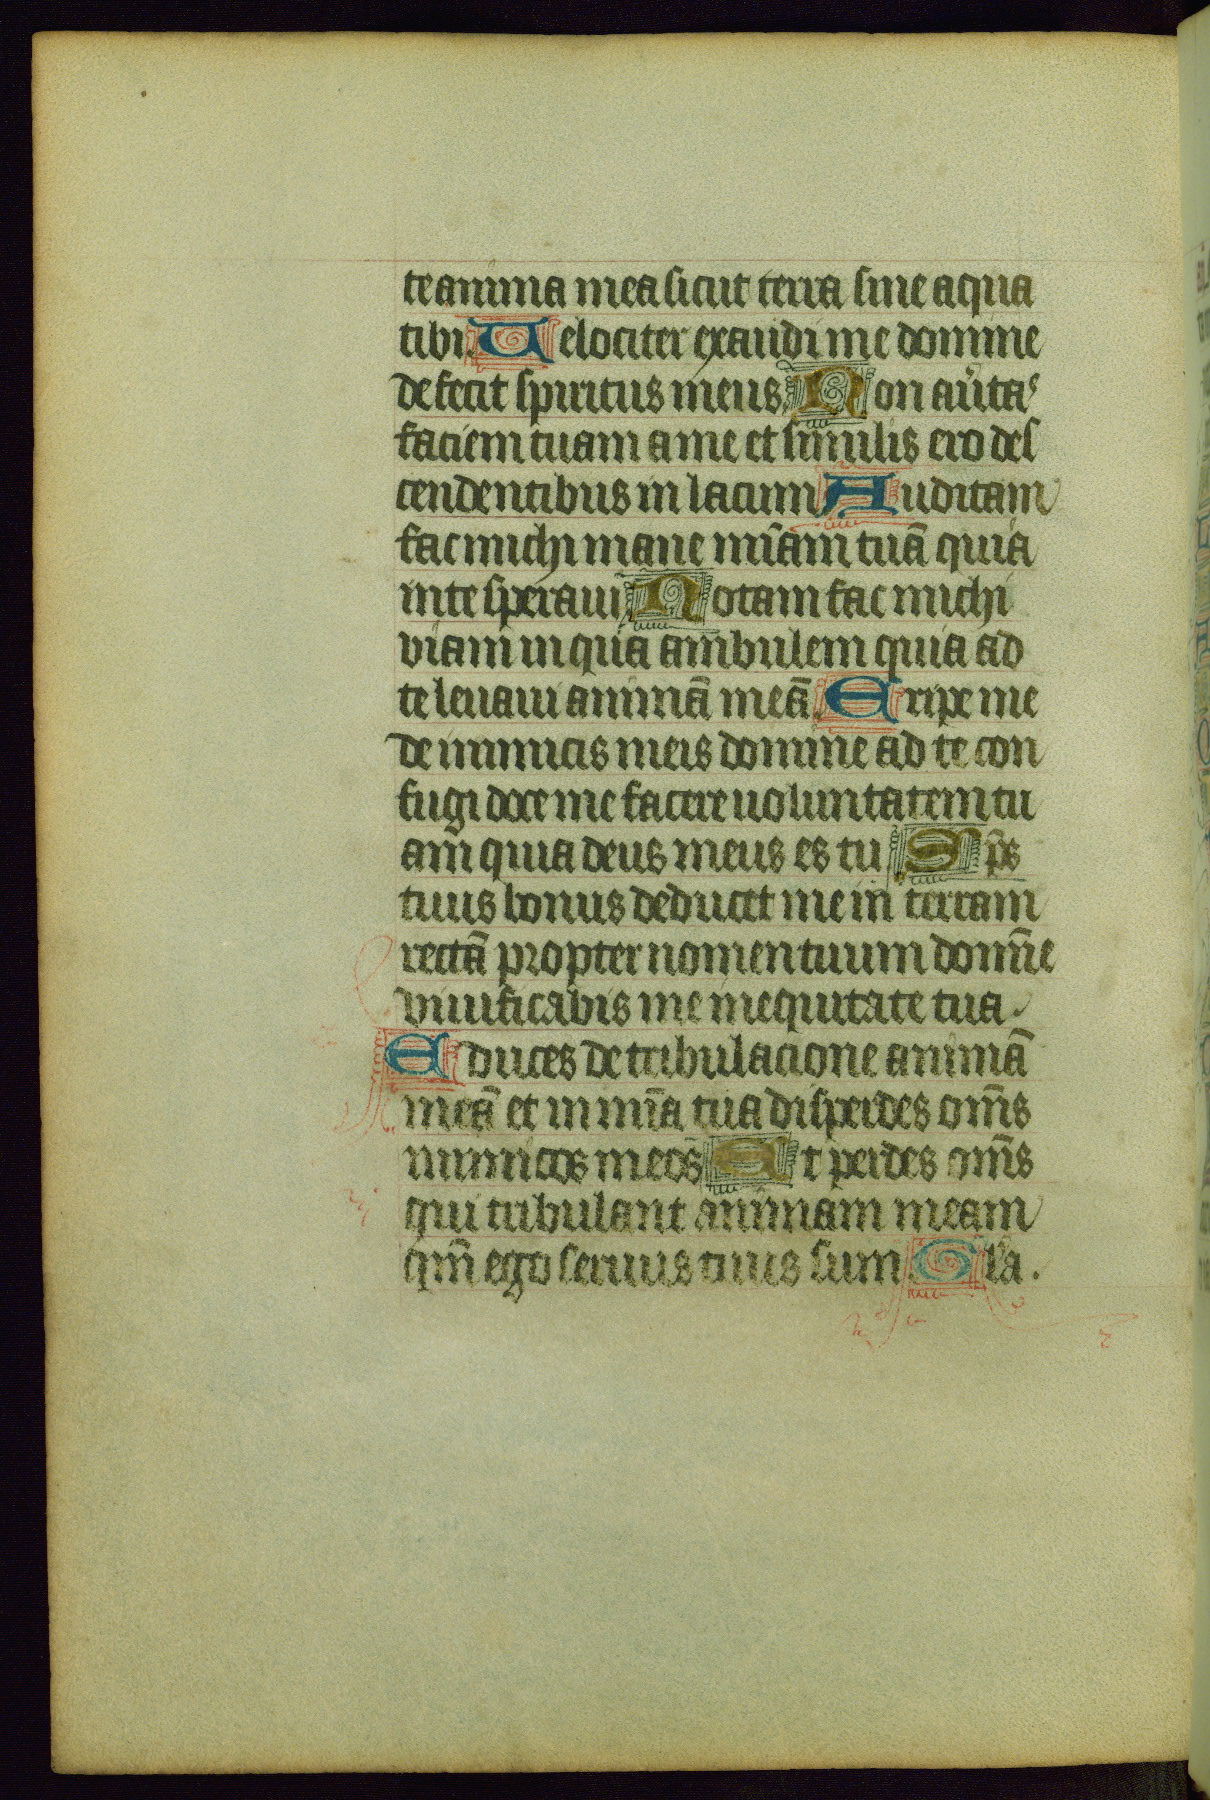 te anima mea sicut terra sine aqua
tibi. Velociter exaudi me domine
defecit spiritus meus. Non au͛tas
faciem tuam a me et similis ero des
cendentibus in lacum Auditam
fac michi mane mīam tuā quia
in te speraui Notam fac michi
viam in qua ambulem quia ad
te leuaui animā meā. Eripe me
de inimicis meis domine ad te con
fugi doce me facere uoluntatem tu
am quia deus meus es tu Sp̄s
tuus bonus deducet me in terram
rectā propter nomen tuum domīe
viuificabis me in equitate tua.
Educes de tribulacione animā
meā et in mīa tua disperdes om̄s
inimicos meos Et perdes om̄s
qui tribulant animam meam
qm̄ ego seruus tuus sum Gl̄a.